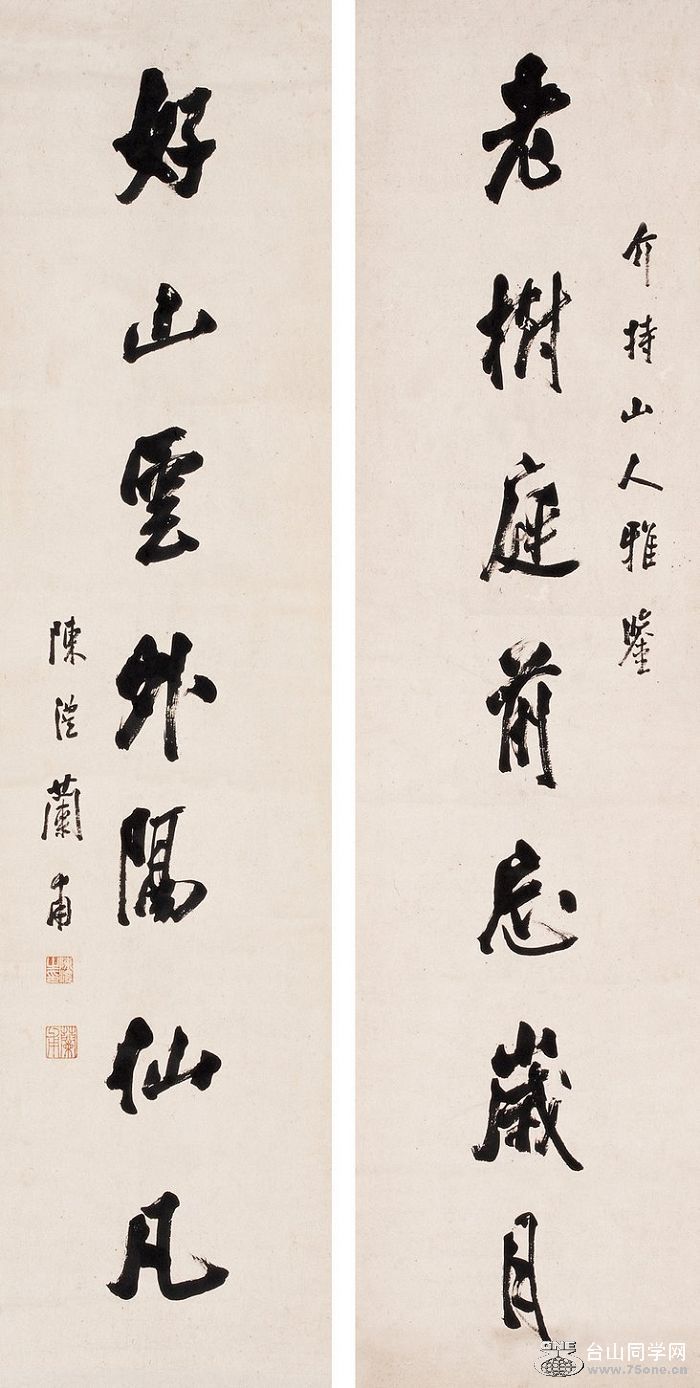 介持山人雅鑒
老樹庭前忘歲月
好山雲外隔仙凡
陳澧蘭甫
ONE
台山同学网
www.75one.cn